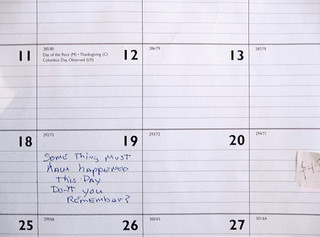 11
285/80
Day of the Race (M) • Thanksgiving (C)
Columbus Day Observed (US)
12
286/79
13
287/78
18
292/73
19
293/72
20
294/71
Some Thing Must
Have happened
This Day
Don't you
Remember?
25
299/66
26
300/65
27
301/64